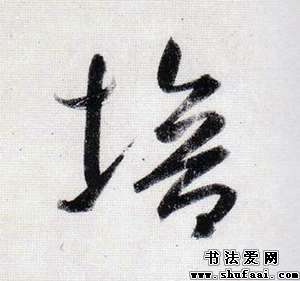 培
书法爱网
www.shufaai.com